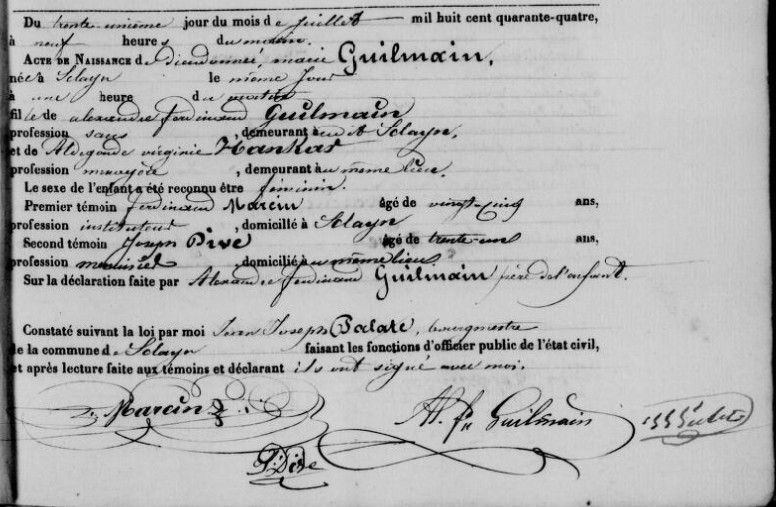 Du trente-unième jour du mois de Juillet mil huit cent quarante-quatre,
à neuf heures du matin.
ACTE DE NAISSANCE de dieudonnée, marie Guilmain,
née à Sclayn le même jour
à une heure du matin
fille de alexandre ferdinand Guilmain
profession sans , demeurant à Sclayn,
et de Aldegonde virginie Hankar
profession , demeurant à même lieu.
Le sexe de l'enfant a été reconnu être féminin.
Premier témoin ferdinand Marcin âgé de vingt-cinq ans,
profession instituteur , domicilié à Sclayn
Second témoin Joseph Pive âgé de trente-un ans,
profession menuisier , domicilié à même lieu
Sur la déclaration faite par Alexandre ferdinand Guilmain père de l'enfant.
Constaté suivant la loi par moi Jean Joseph , bourgmestre
de la commune de Sclayn faisant les fonctions d'officier public de l'état civil,
et après lecture faite aux témoins et déclarant ils ont signé avec moi.
Marcin
Guilmain